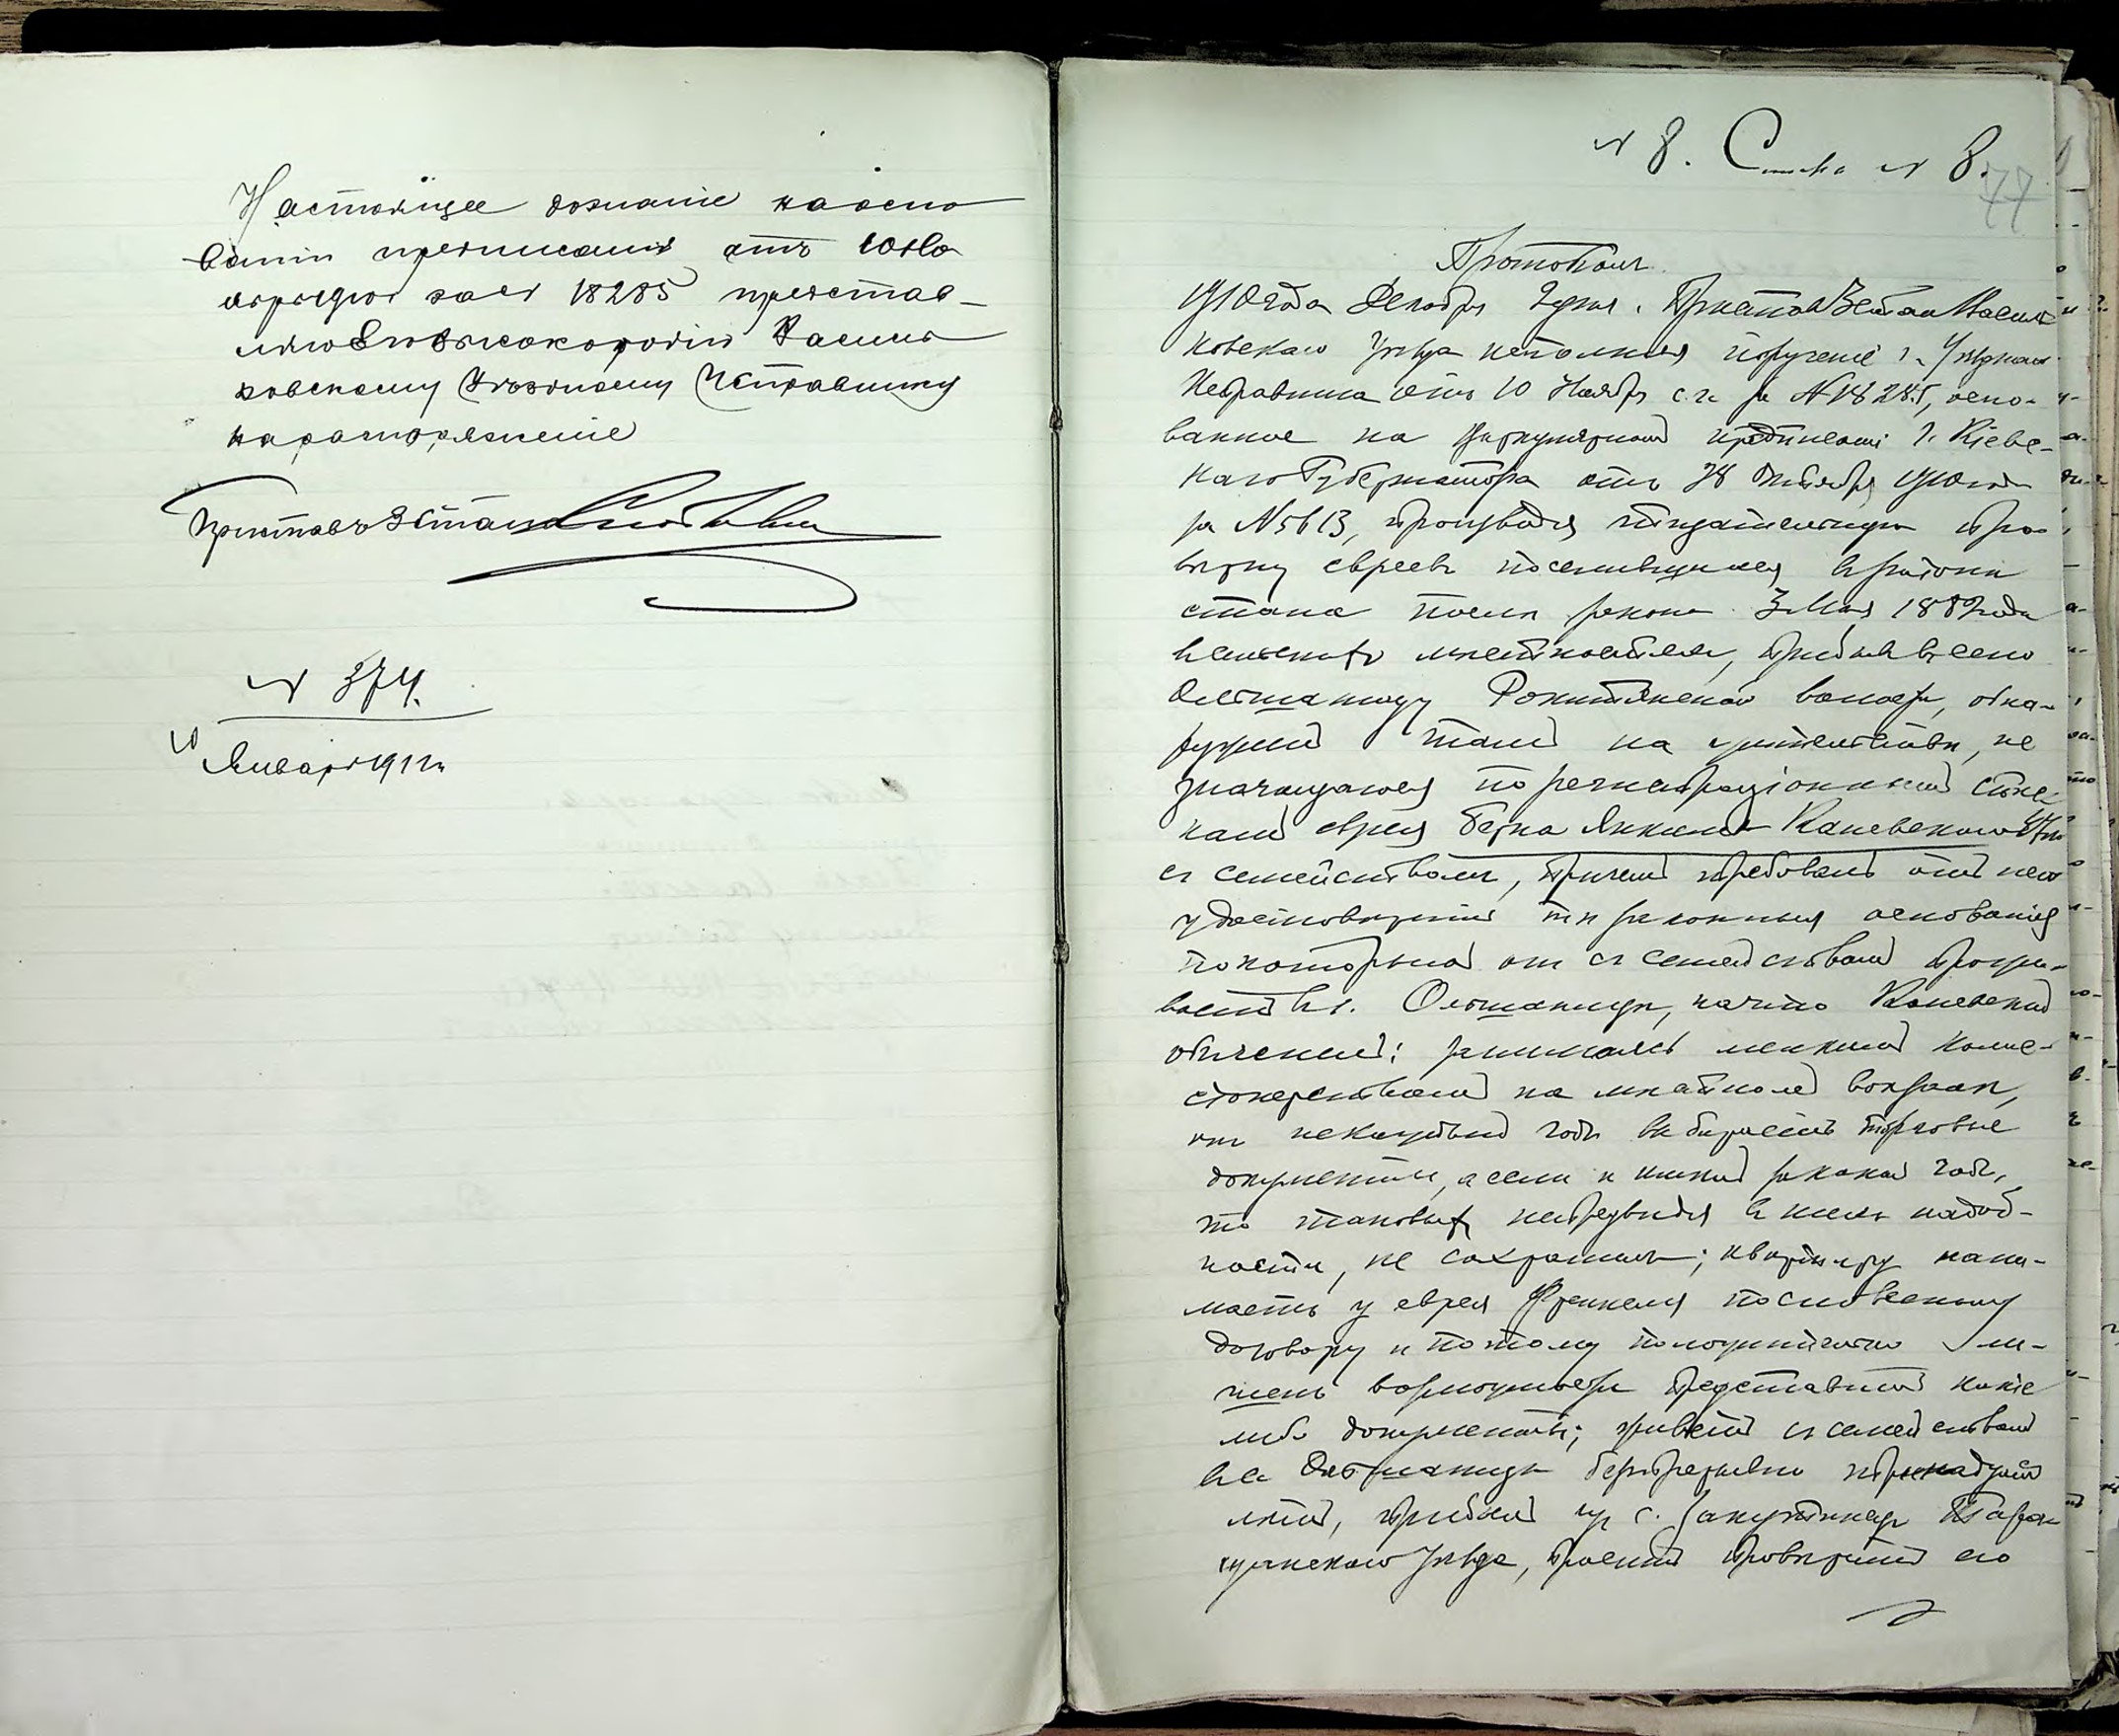 Настоящее дознаніе на осно
ваніи предписанія отъ 10 Но
ября за № 18285 представ-
ляю Его Высокородію Василь
ковскому Уѣздному Исправнику
на распоряженіе
Приставъ 3 стана
№ 374.
10 Января 1911 г.
№ 8. Списка № 8.
77
Протоколъ
1910 года Декабря 2 дня. Приставъ 3 стана Василь
ковскаго Уѣзда исполняя порученіе г. Уѣзднаго
Исправника отъ 10 Ноября с.г. за № 18285, осно-
ванное на циркулярномъ предписаніи г. Кіевс-
каго Губернатора отъ 28 Октября 1910 года
за № 5613, производя тщательную про-
вѣрку евреевъ поселившихся въ районѣ
стана послѣ закона 3 Мая 1882 года
въ сельскихъ мѣстностяхъ, прибылъ въ село
Ольшаницу Рокитянской волости, обна-
ружилъ тамъ на жительствѣ, не
значащагося по регистраціоннымъ спис-
камъ еврея Берка Янкеля Каневскаго
съ семействомъ, причемъ требовалъ отъ него
удостовѣренія тѣ законныя основанія
по которымъ онъ съ семействомъ прожи-
ваетъ въ с. Ольшаницѣ, на что Каневскій
объяснилъ: занимаясь мелкимъ комис-
сіонерствомъ на мѣстномъ вокзалѣ,
онъ не каждый годъ выбираетъ торговые
документы, а если и имѣлъ за какой годъ,
то таковыхъ не предвидя въ нихъ надоб-
ности, не сохранилъ; квартиру нани-
маетъ у еврея Френкеля по словесному
договору и потому положительно ли-
шенъ возможности представить какіе
либо документы; живетъ съ семействомъ
въ с. Ольшаницѣ безпрерывно
лѣтъ, прибылъ изъ с. Тара
щанскаго Уѣзда, проситъ провѣрить его